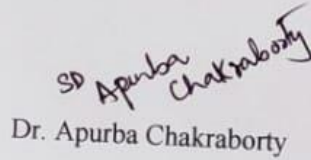 SD Apurba
Chakraborty
Dr. Apurba Chakraborty